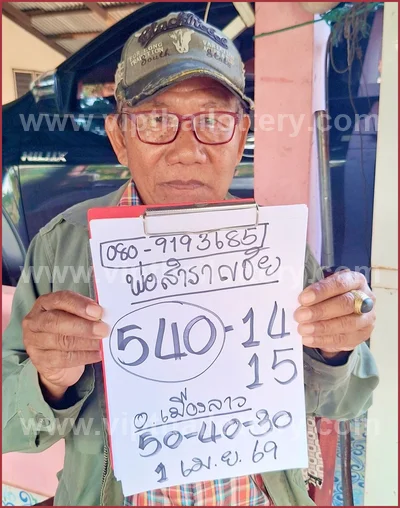 080-9193685
พ่อสำราญชัย
540-14
15
อ.เมืองลาว
50-40-30
1 เม.ย. 69
HILUX
www.vipthailottery.com
www.vipthailottery.com
www.vipthailottery.com